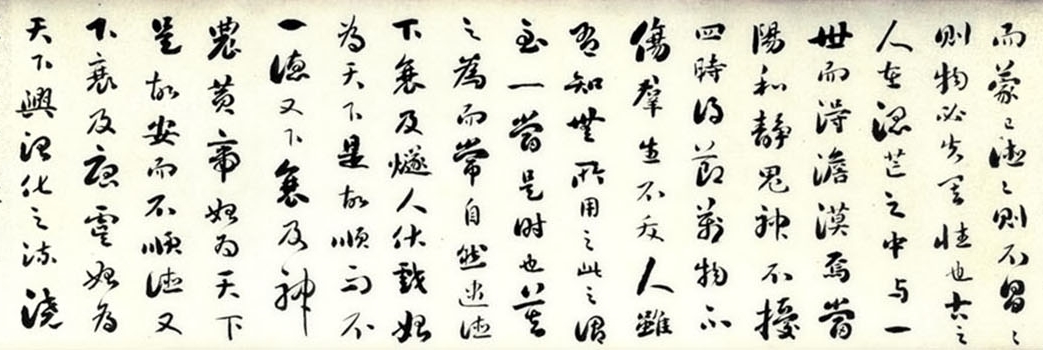 而蒙己德〻則不冒〻
則物必失其性也古之
人在混芒之中与一
世而得澹漠焉當
陽和靜鬼神不擾
四時得節萬物不
傷羣生不夭人雖
有知無所用之此之謂
至一當是时也莫
之為而常自然逮德
下衰及燧人伏戲始
為天下是故順而不
一德又下衰及神
農黃帝始為天下
是故安而不順德又
下衰及唐虞始為
天下興治化之流澆